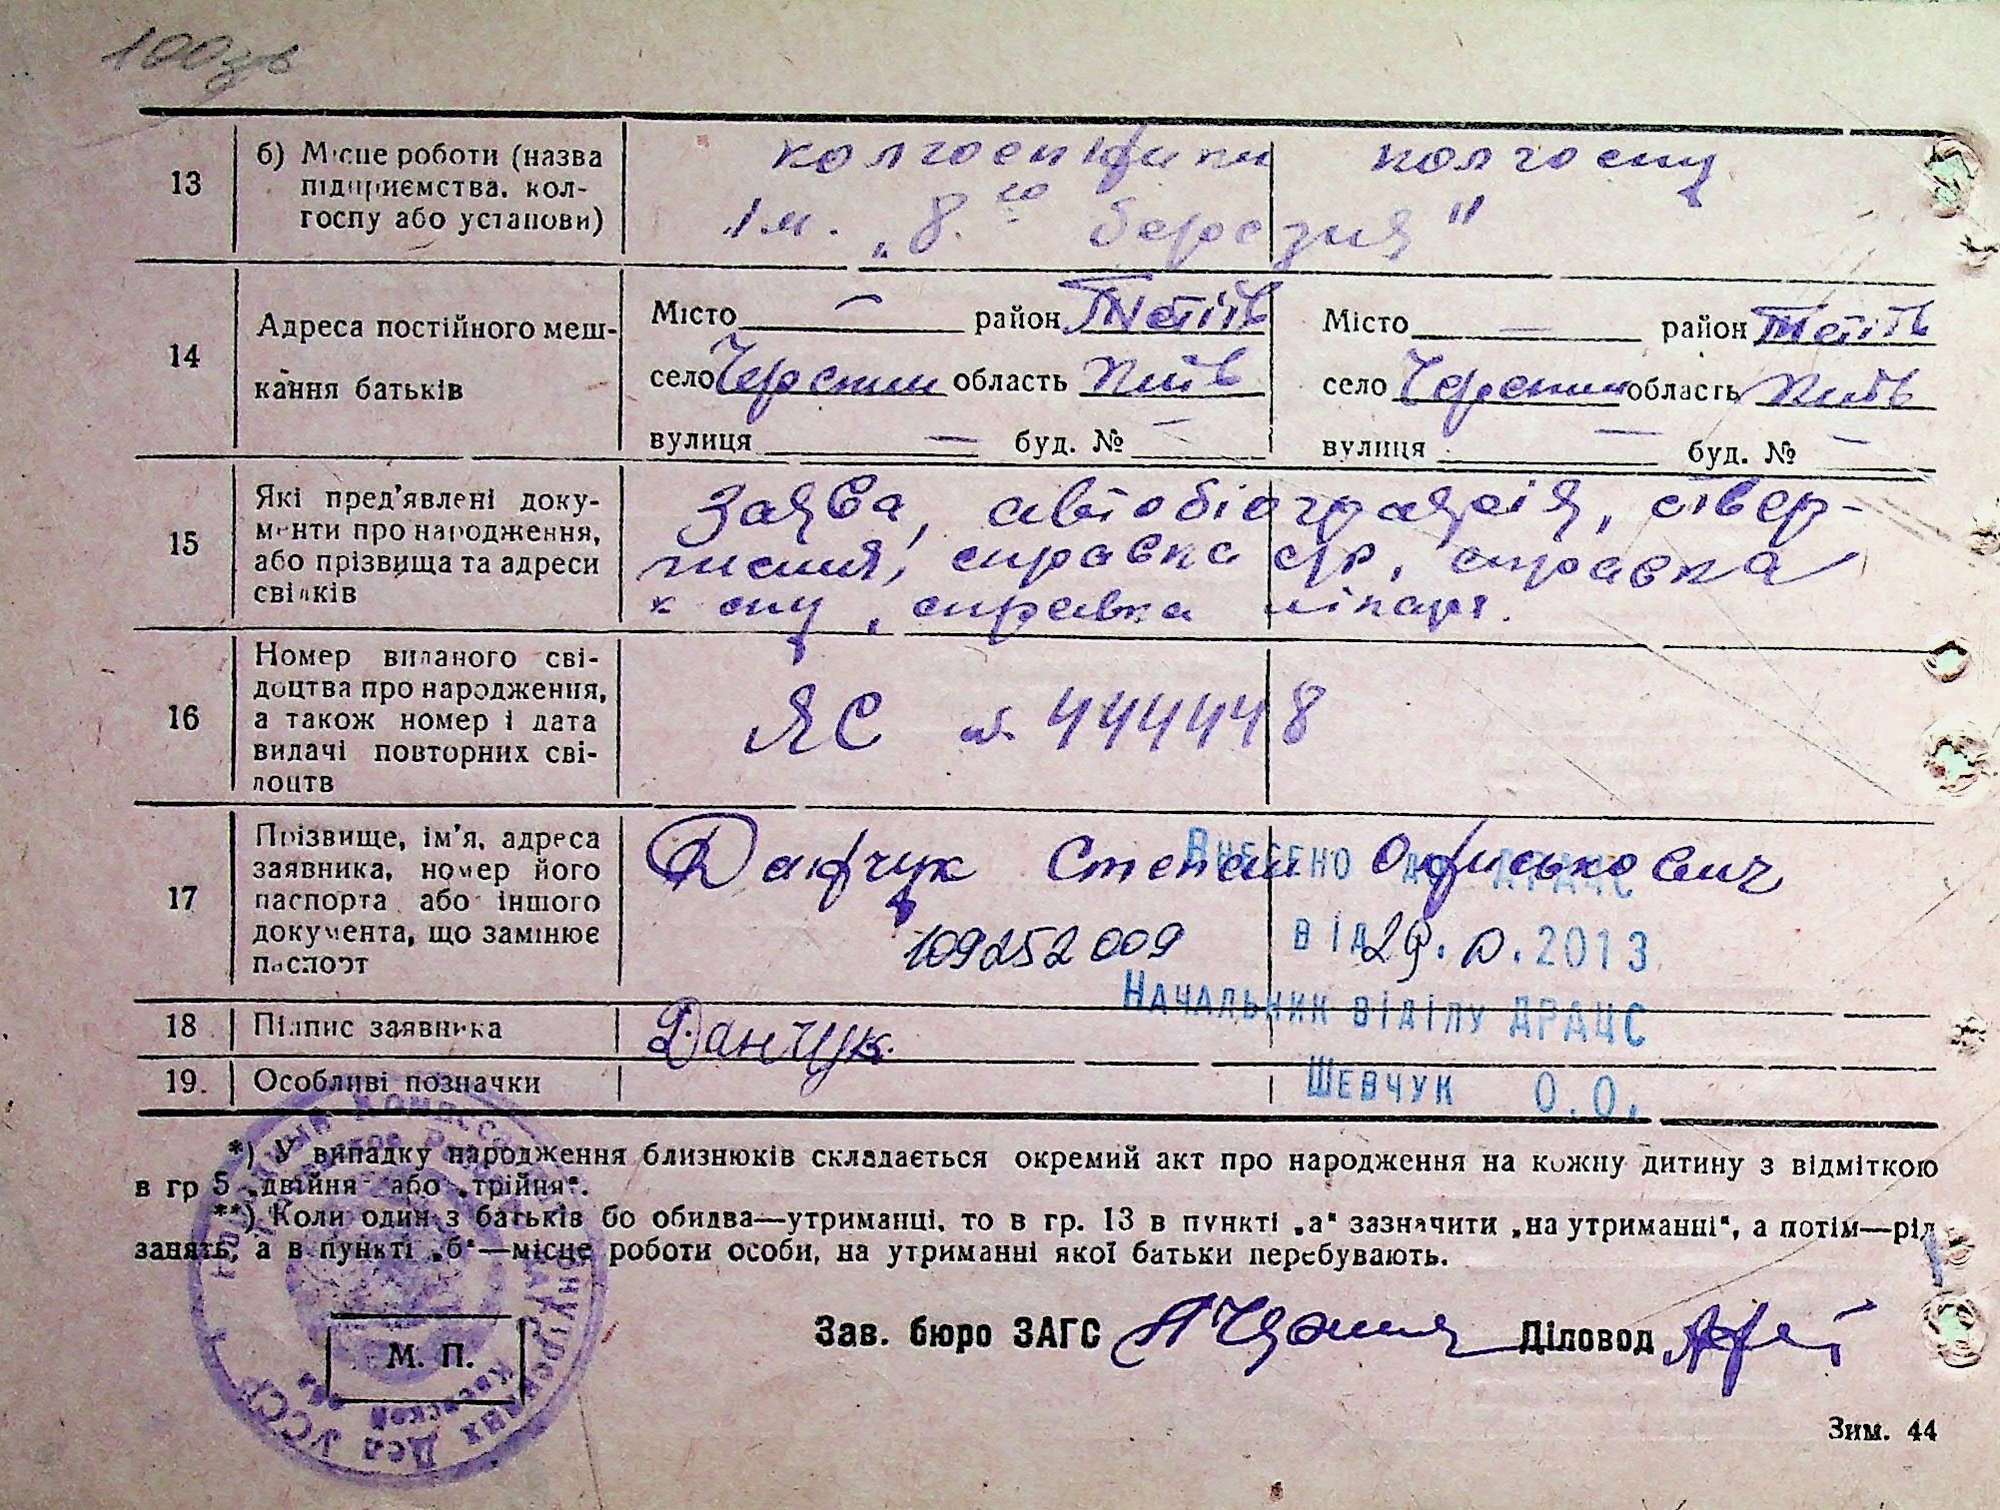 100зв
13
б) Місце роботи (назва
підприємства, кол-
госпу або установи)
колгоспники колгоспу
ім. „8го березня"
14
Адреса постійного меш-
кання батьків
Місто — район Тетіїв
село Черепин область Київ
вулиця — буд. № —
Місто — район Тетіїв
село Черепин область Київ
вулиця — буд. № —
15
Які пред'явлені доку-
менти про народження,
або прізвища та адреси
свідків
Заява, автобіографія, ствер-
справка с/р, справка
к-спу, справка лікаря.
16
Номер виданого сві-
доцтва про народження,
а також номер і дата
видачі повторних сві-
доцтв
ЯС № 444448
17
Прізвище, ім'я, адреса
заявника, номер його
паспорта або іншого
документа, що замінює
паспорт
Данчук Степан
109252009
Внесено до ДРАЦС
від 29. .2013
Начальник відділу ДРАЦС
Шевчук О.О.
18
Підпис заявника
Данчук
19.
Особливі позначки
*) У випадку народження близнюків складається окремий акт про народження на кожну дитину з відміткою
в гр 5 „двійня" або „трійня".
**) Коли один з батьків бо обидва—утриманці, то в гр. 13 в пункті „а" зазначити „на утриманні", а потім—рід
занять, а в пункті „б"—місце роботи особи, на утриманні якої батьки перебувають.
Зав. бюро ЗАГС
Діловод
М. П.
Зим. 44